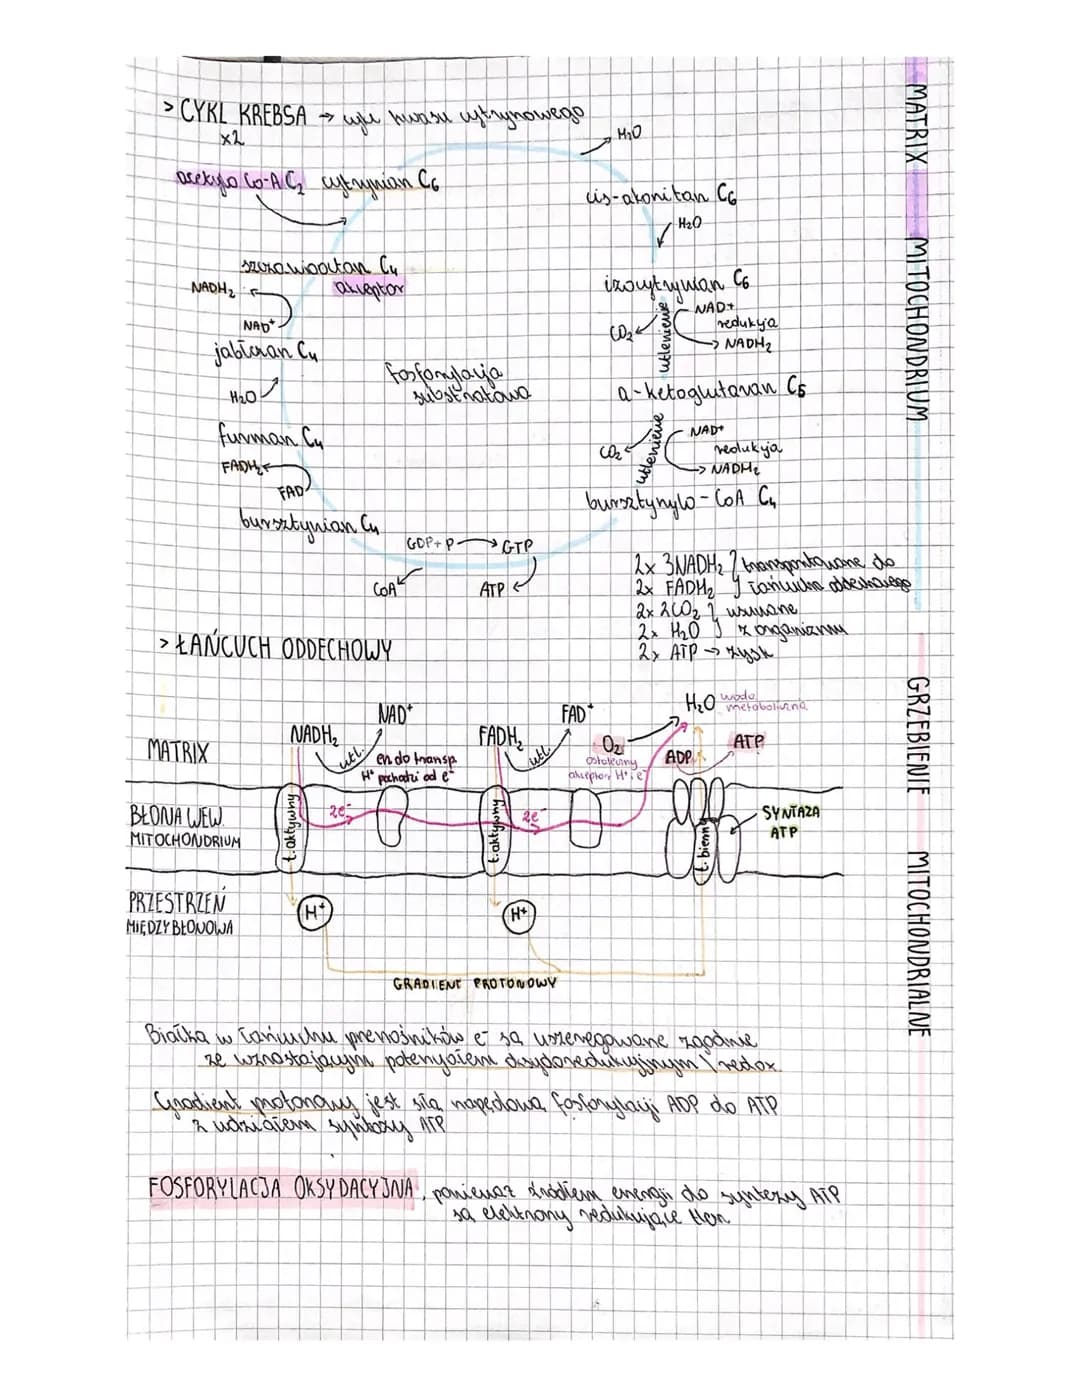 > CYKL KREBSA → cykl kwasu cytrynowego
x2
H₂O
acetylo Co-A C₂ cytrynian C₆
cis-akonitan C₆
H₂O
szczawiooctan C₄
akceptor
NADH₂
NAD⁺
izocytrynian C₆
NAD+
redukcja
→ NADH₂
CO₂
utlenienie
jabłczan C₄
H₂O
fosforylacja
substratowa
a-ketoglutaran C₅
NAD+
redukcja
→ NADH₂
CO₂
utlenienie
fumaran C₄
FADH₂
FAD
bursztynylo-CoA C₄
bursztynian C₄
GDP+P → GTP
CoA
ATP
2x 3NADH₂ } transportowane do
2x FADH₂ } łańcucha oddechowego
2x 2CO₂ } usuwane
2x H₂O } z organizmu
2x ATP → zysk
MATRIX MITOCHONDRIUM
> ŁAŃCUCH ODDECHOWY
H₂O woda
metaboliczna
NAD⁺
FAD⁺
NADH₂
FADH₂
utl.
utl.
MATRIX
en do transp.
H⁺ pochodzi od e⁻
O₂
ostateczny
akceptor H⁺ i e⁻
ADP
ATP
BŁONA WEW.
MITOCHONDRIUM
t. aktywny
2e⁻
t. aktywny
2e⁻
t. bierny
SYNTAZA
ATP
PRZESTRZEŃ
MIĘDZYBŁONOWA
H⁺
H⁺
GRADIENT PROTONOWY
GRZEBIENIE MITOCHONDRIALNE
Białka w łańcuchu przenośników e⁻ są uszeregowane zgodnie
ze wzrastającym potencjałem oksydoredukcyjnym \ redox
Gradient protonowy jest siłą napędową fosforylacji ADP do ATP
z udziałem syntazy ATP
FOSFORYLACJA OKSYDACYJNA, ponieważ źródłem energii do syntezy ATP
są elektrony redukujące tlen